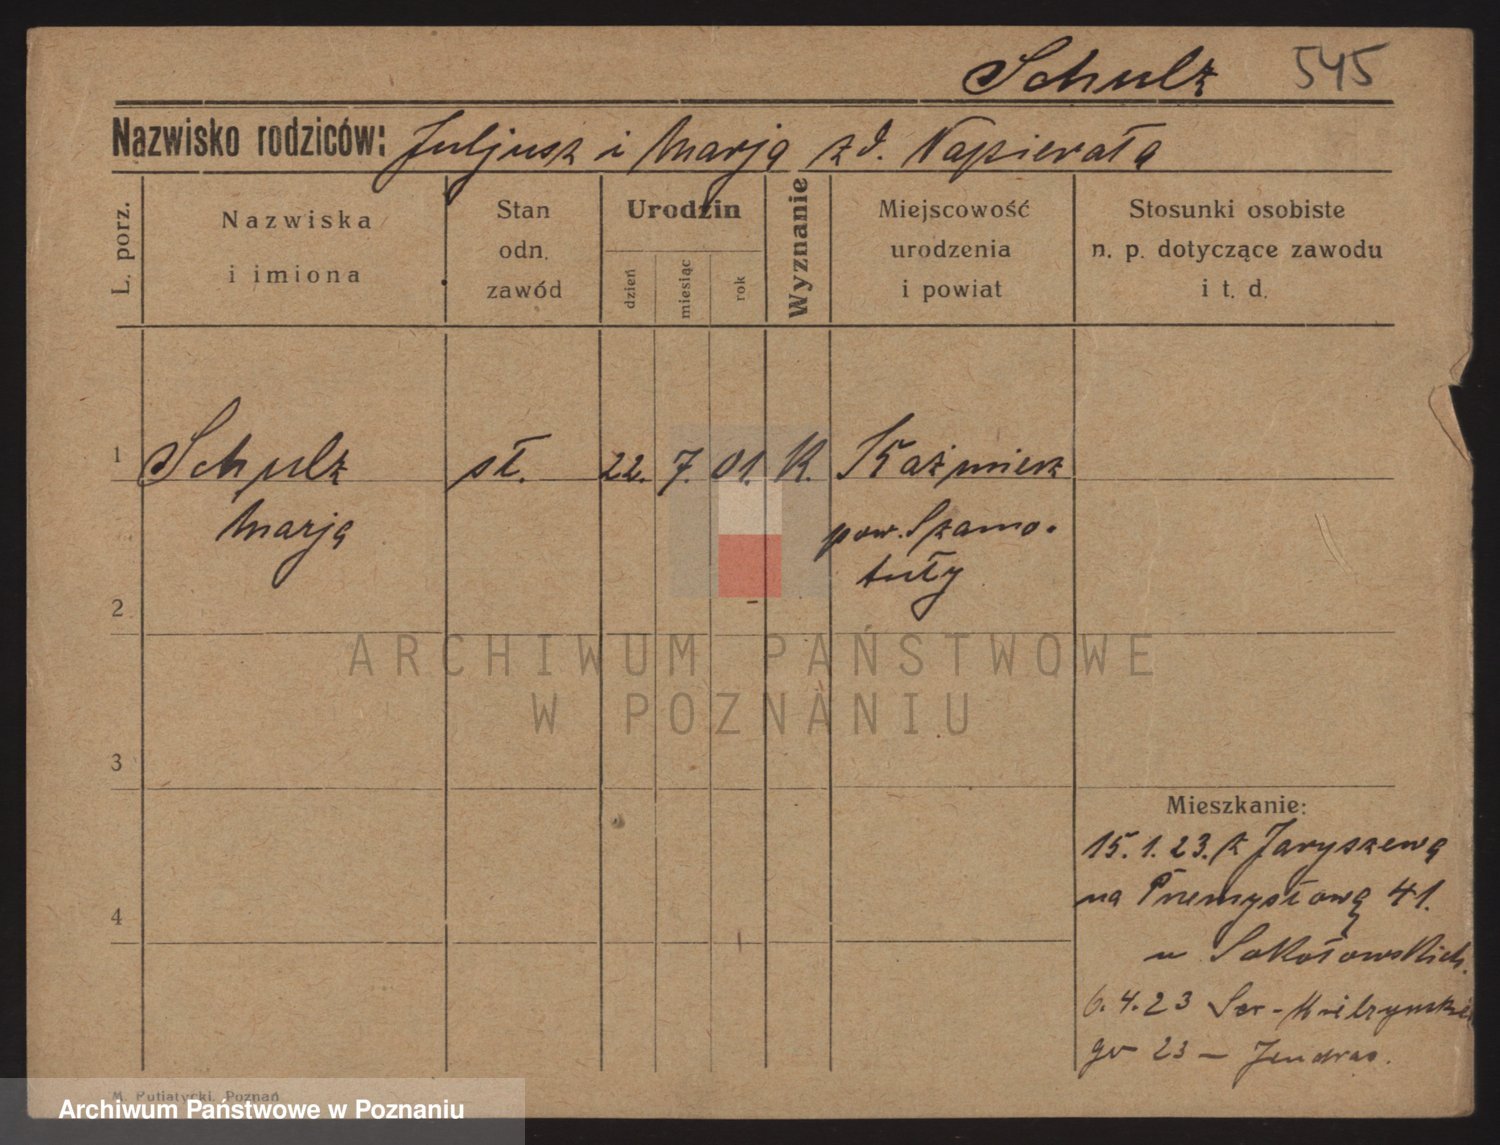 Schulz 545
Nazwisko rodziców: Juljusz i Marja zd. Napierała
L. porz.
Nazwiska
i imiona
Stan
odn.
zawód
Urodzin
dzień
miesiąc
rok
Wyznanie
Miejscowość
urodzenia
i powiat
Stosunki osobiste
n. p. dotyczące zawodu
i t. d.
1 Schulz sł. 22. 7. 01. K. Kaźmierz
Marja pow. Szamo-
tuły
2
ARCHIWUM PAŃSTWOWE
W POZNANIU
3
Mieszkanie:
15.1.23. z Jaryszewa
na Przemysłową 41.
4
u Sokołowskich.
6.4.23 Sew. Mielżyńskie
go 23 – Jendras.
M. Putiatycki, Poznań
Archiwum Państwowe w Poznaniu